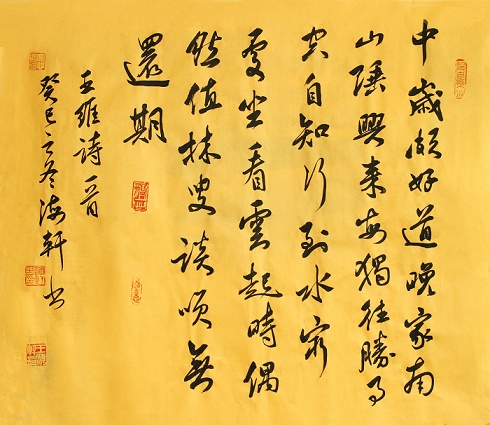 中歲頗好道晚家南
山陲興來每獨往勝事
空自知行到水窮
處坐看雲起時偶
然值林叟談笑無
還期
王維詩一首
癸巳之冬海軒书